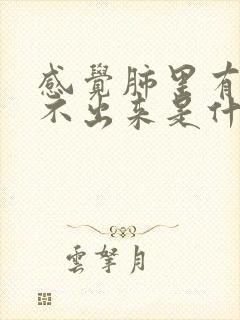 感覺肺里有
不出来是什
雲拏月